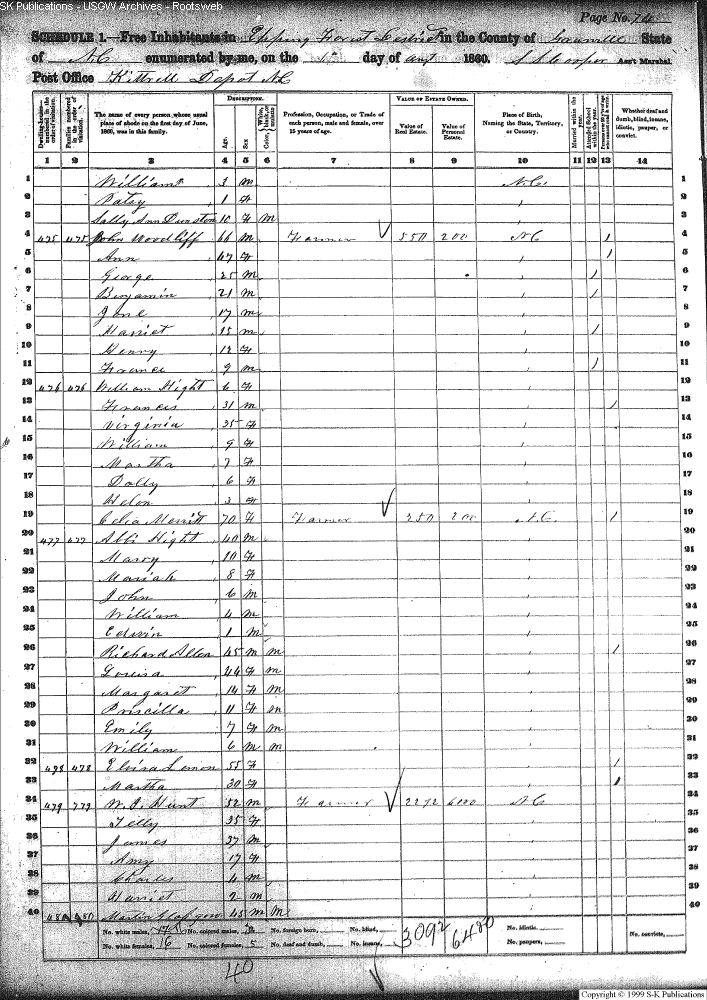 SK Publications - USGW Archives - Rootsweb
Page No. 74
SCHEDULE 1.—Free Inhabitants in Epping Forest District in the County of Granville State
of NC enumerated by me, on the day of Aug 1860. Ass't Marshal.
Post Office Kittrell Depot NC
DESCRIPTION. VALUE OF ESTATE OWNED.
Dwelling-houses—numbered in the order of visitation. Families numbered in the order of visitation. The name of every person whose usual place of abode on the first day of June, 1860, was in this family. Age. Sex. Color, White, black, or mulatto. Profession, Occupation, or Trade of each person, male and female, over 15 years of age. Value of Real Estate. Value of Personal Estate. Place of Birth, Naming the State, Territory, or Country. Married within the year. Attended School within the year. Whether deaf and dumb, blind, insane, idiotic, pauper, or convict.
1 2 3 4 5 6 7 8 9 10 11 12 13 14
1 William 3 m N.C. 1
2 Patsy 1 F 2
3 Sally Ann Dunston 10 F m 3
4 475 475 John Woodliff 66 m Farmer 550 200 NC / 4
5 Ann 47 F / 5
6 George 25 m / 6
7 Benjamin 21 m / 7
8 Jane 17 m 8
9 Harriet 15 m / 9
10 Henry 12 F 10
11 Frances 9 m / 11
12 476 476 William Hight 6 F 12
13 Frances 31 m / 13
14 Virginia 35 F 14
15 William 9 F 15
16 Martha 7 F 16
17 Dolly 6 F 17
18 Helen 3 F 18
19 Celia Merritt 70 F Farmer 250 200 N.C. / 19
20 477 477 Abbi Hight 40 m 20
21 Marry 10 F 21
22 Mariah 8 F 22
23 John 6 m 23
24 William 4 m 24
25 Edwin 1 m 25
26 Richard Allen 45 m m / 26
27 Louisa 44 F m 27
28 Margaret 14 F m 28
29 Priscilla 11 F m 29
30 Emily 7 F m 30
31 William 6 m m 31
32 478 478 Elvira Lemon 55 F / 32
33 Martha 30 F / 33
34 479 779 W. J. Hunt 52 m Farmer 2292 6000 NC 34
35 Telly 35 F 35
36 James 37 m 36
37 Amy 17 F 37
38 Charles 4 m 38
39 Harriet 2 m 39
40 480 480 Martin 45 m m 40
No. white males, No. colored males, No. foreign born, No. blind, 3092 6480 No. idiotic, No. convicts,
No. white females, 16 No. colored females, 5 No. deaf and dumb, No. insane, No. paupers,
40
Copyright © 1999 S-K Publications